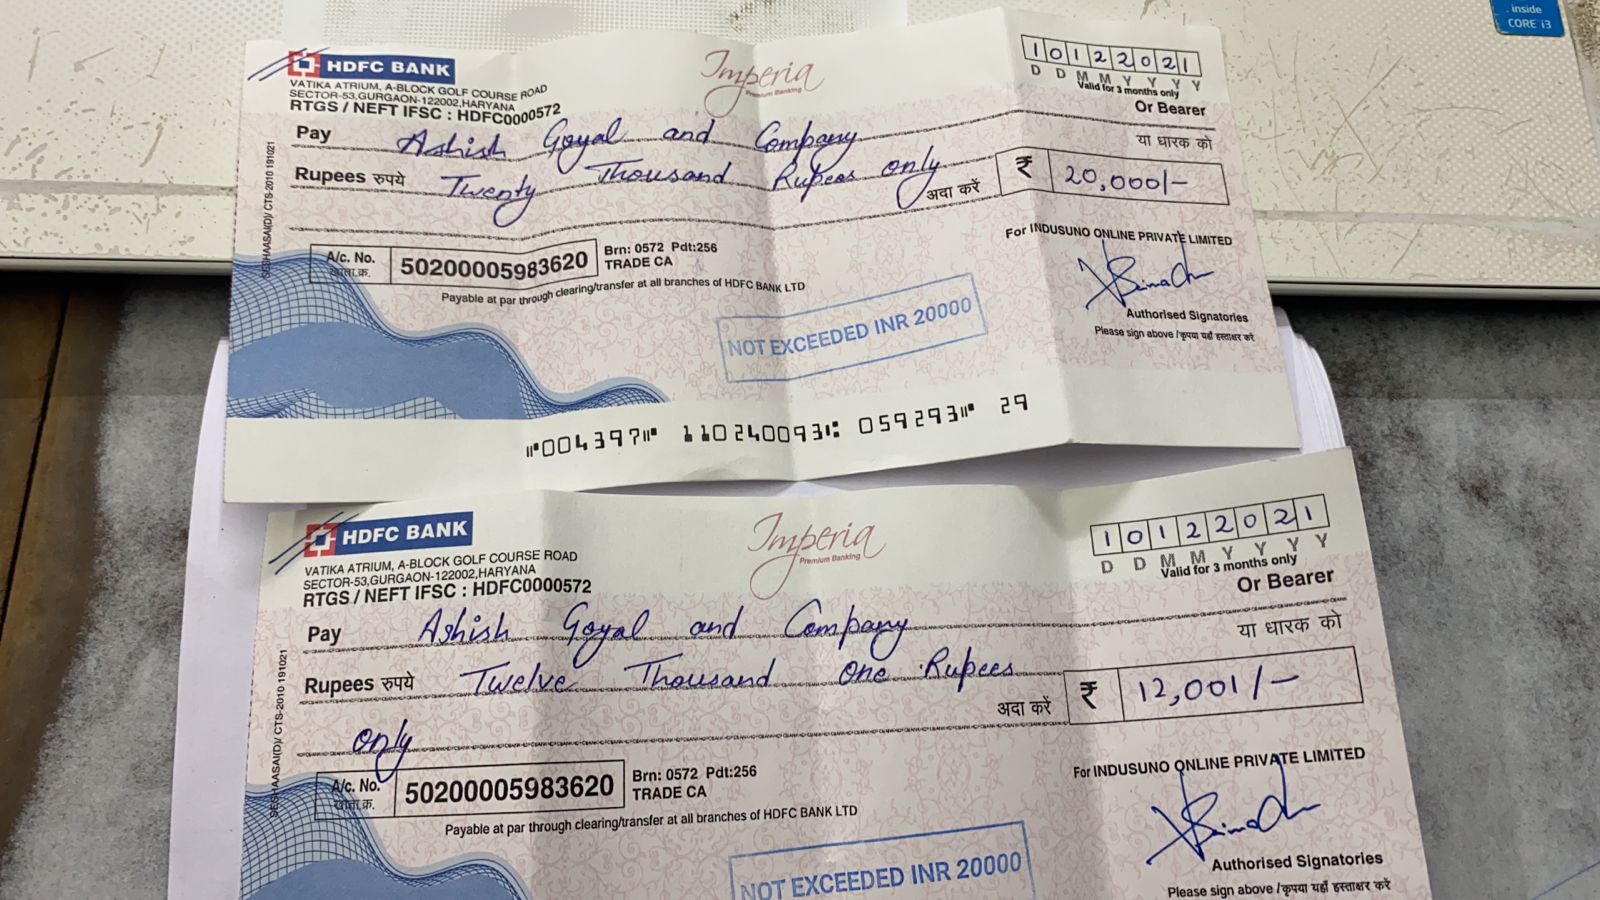 inside
CORE i3
HDFC BANK
VATIKA ATRIUM, A-BLOCK GOLF COURSE ROAD
SECTOR-53,GURGAON-122002,HARYANA
RTGS / NEFT IFSC : HDFC0000572
Imperia
Premium Banking
10122021
D D M M Y Y Y Y
Valid for 3 months only
Or Bearer
या धारक को
Pay Ashish Goyal and Company
Rupees रुपये Twenty Thousand Rupees only
अदा करें
₹ 20,000/-
SESHAASAI(D)/ CTS-2010 191021
A/c. No.
खाता.क्र.
50200005983620
Brn: 0572 Pdt:256
TRADE CA
Payable at par through clearing/transfer at all branches of HDFC BANK LTD
For INDUSUNO ONLINE PRIVATE LIMITED
Authorised Signatories
Please sign above /कृपया यहाँ हस्ताक्षर करें
NOT EXCEEDED INR 20000
⑈004397⑈ 110240093⑆ 059293⑈ 29
HDFC BANK
VATIKA ATRIUM, A-BLOCK GOLF COURSE ROAD
SECTOR-53,GURGAON-122002,HARYANA
RTGS / NEFT IFSC : HDFC0000572
Imperia
Premium Banking
10122021
D D M M Y Y Y Y
Valid for 3 months only
Or Bearer
या धारक को
Pay Ashish Goyal and Company
Rupees रुपये Twelve Thousand One Rupees
अदा करें
₹ 12,001/-
only
SESHAASAI(D)/ CTS-2010 191021
A/c. No.
खाता.क्र.
50200005983620
Brn: 0572 Pdt:256
TRADE CA
Payable at par through clearing/transfer at all branches of HDFC BANK LTD
For INDUSUNO ONLINE PRIVATE LIMITED
Authorised Signatories
Please sign above /कृपया यहाँ हस्ताक्षर करें
NOT EXCEEDED INR 20000